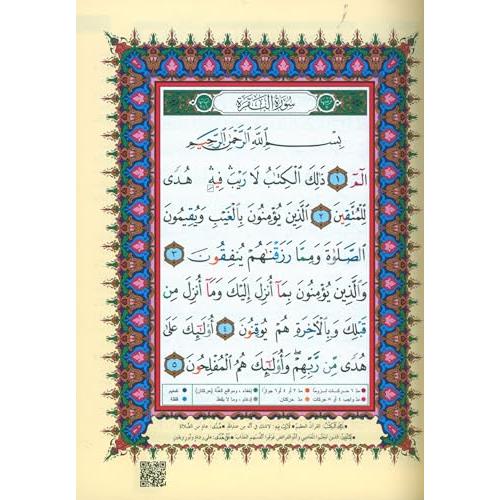 سُورَةُ الْبَقَرَةِ
بِسْمِ اللَّهِ الرَّحْمَٰنِ الرَّحِيمِ
الٓمٓ ١ ذَٰلِكَ الْكِتَٰبُ لَا رَيْبَ فِيهِ هُدًى
لِّلْمُتَّقِينَ ٢ الَّذِينَ يُؤْمِنُونَ بِالْغَيْبِ وَيُقِيمُونَ
الصَّلَوٰةَ وَمِمَّا رَزَقْنَٰهُمْ يُنفِقُونَ ٣
وَالَّذِينَ يُؤْمِنُونَ بِمَآ أُنزِلَ إِلَيْكَ وَمَآ أُنزِلَ مِن
قَبْلِكَ وَبِالْآخِرَةِ هُمْ يُوقِنُونَ ٤ أُو۟لَٰٓئِكَ عَلَىٰ
هُدًى مِّن رَّبِّهِمْ وَأُو۟لَٰٓئِكَ هُمُ الْمُفْلِحُونَ ٥